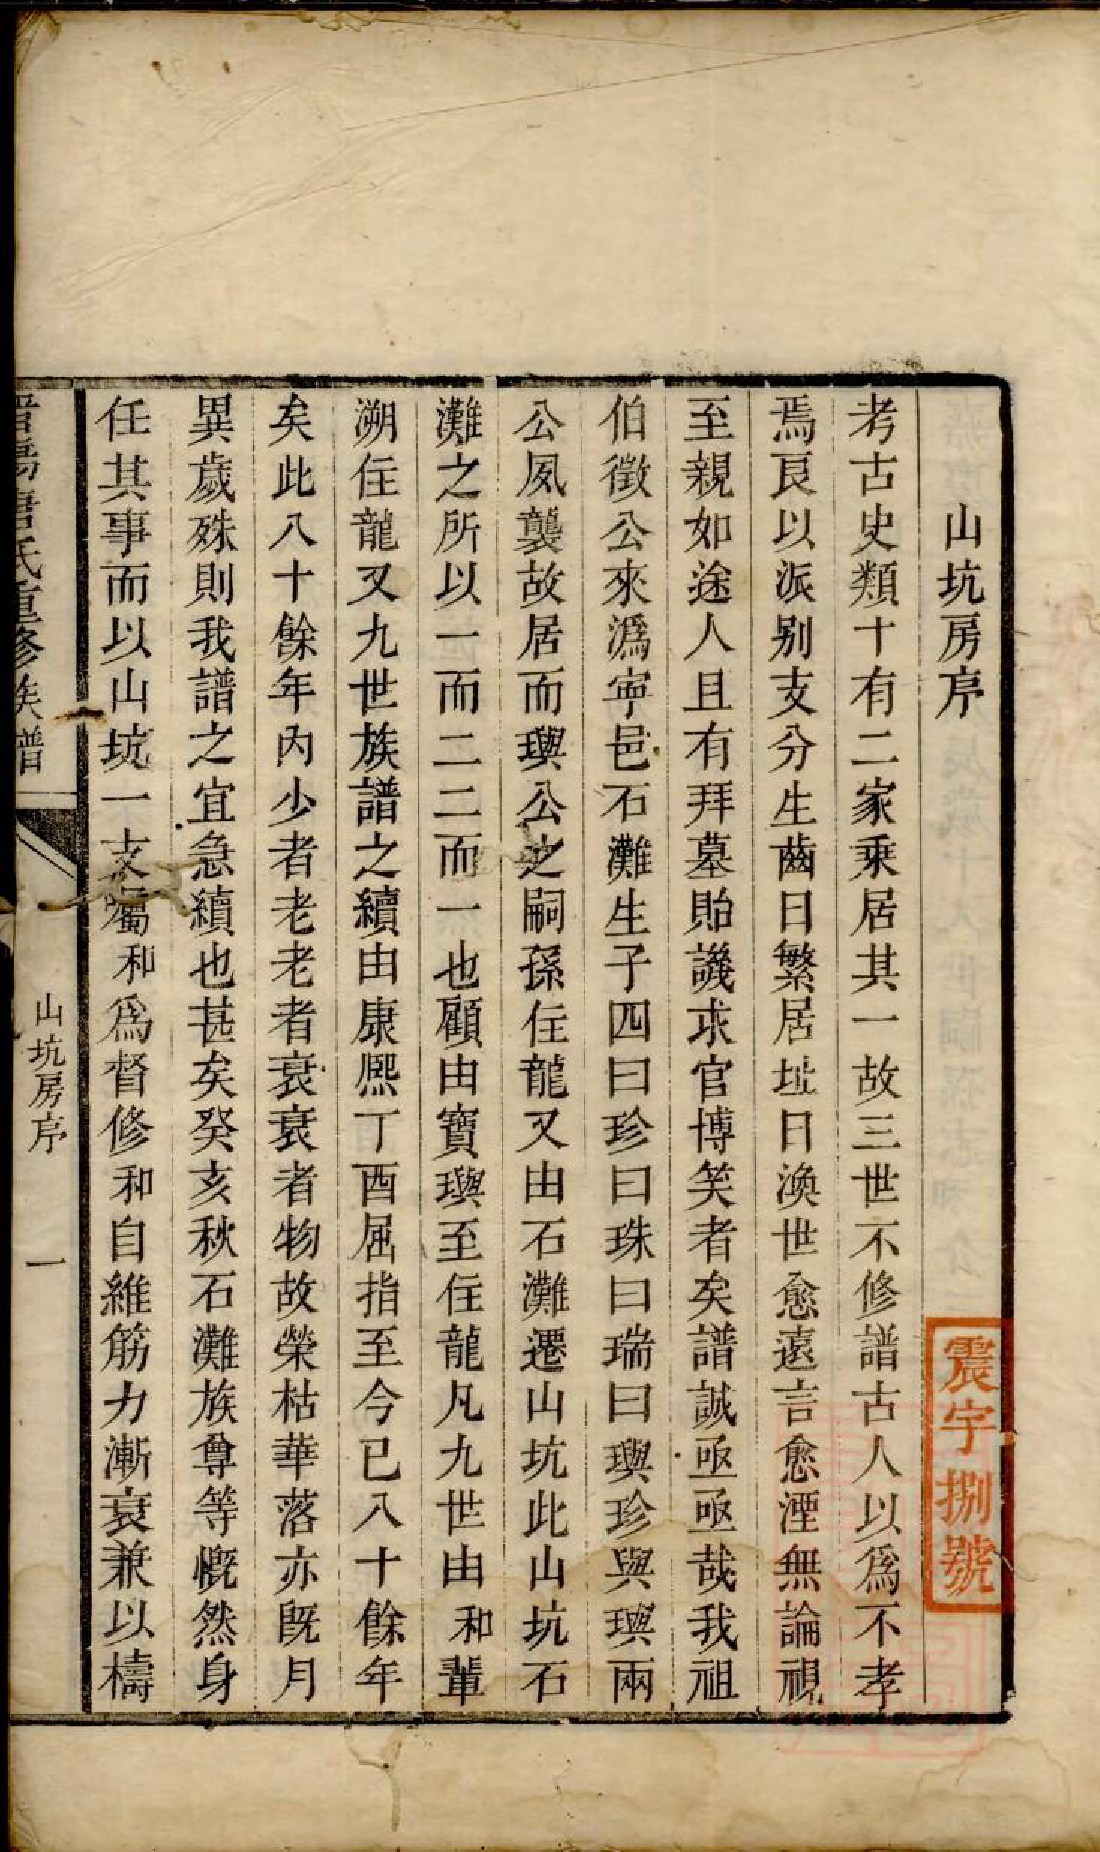 山坑房序
考古史類十有二家乘居其一故三世不修譜古人以爲不孝
焉良以派别支分生齒日繁居址日渙世愈遠言愈湮無論視
至親如途人且有拜墓貽譏求官博笑者矣譜誠亟亟哉我祖
伯徵公來潙寧邑石灘生子四曰珍曰珠曰瑞曰璵珍與璵兩
公夙襲故居而璵公之嗣孫住龍又由石灘遷山坑此山坑石
灘之所以一而二二而一也顧由寶璵至住龍凡九世由和輩
溯住龍又九世族譜之續由康熈丁酉屈指至今已八十餘年
矣此八十餘年內少者老老者衰衰者物故榮枯華落亦旣月
異歲殊則我譜之宜急續也甚矣癸亥秋石灘族尊等慨然身
任其事而以山坑一支屬和爲督修和自維筋力漸衰兼以檮
氏重修族譜
山坑房序
一
震字捌號